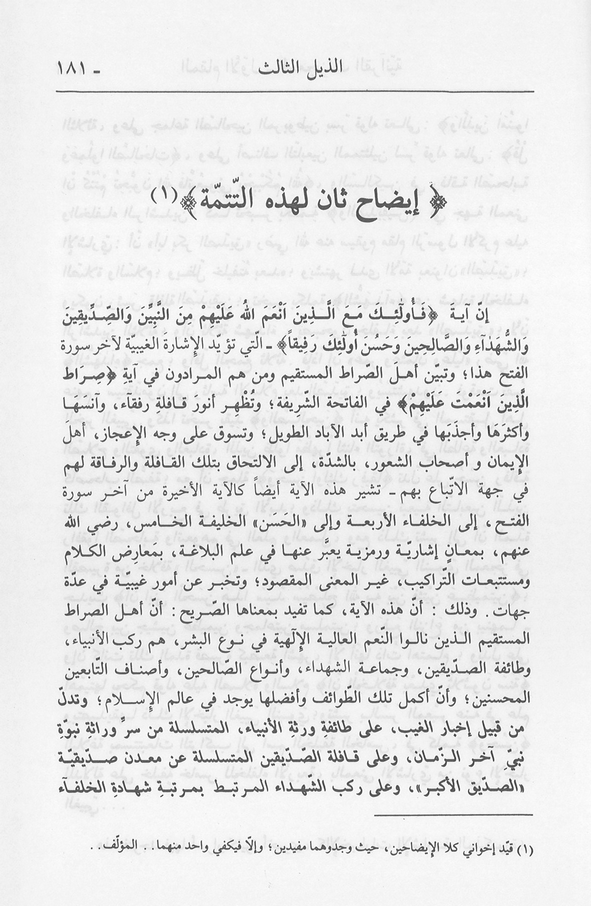 الذيل الثالث ـ ١٨١
﴿ إيضاح ثان لهذه التّتمّة﴾(١)
إنّ اية ﴿فَأُولٰئِكَ مَعَ الَّذِينَ اَنْعَمَ اللهُ عَلَيْهِمْ مِنَ النَّبِيِّنَ وَالصِّدِّيقِينَ
وَالشُّهَدَآءِ وَالصَّالِحِينَ وَحَسُنَ أُولٰئِكَ رَفِيقاً﴾ ـ الّتي تؤيّد الإشارةَ الغيبيّة لآخر سورة
الفتح هذا؛ وتبيّن أهلَ الصّراط المستقيم ومن هم المرادون في آيةِ ﴿صِرَاطَ
الَّذِينَ اَنْعَمْتَ عَلَيْهِمْ﴾ في الفاتحة الشّريفة؛ وتُظْهِر أنورَ قافلةِ رفقآء، وآنسَهَا
وأكثرَهَا وأجذَبَها في طريق أبد الآباد الطويل؛ وتسوق على وجه الإعجاز، أهلَ
الإيمان و أصحابَ الشعور، بالشدّة، إلى الالتحاق بتلك القافلة والرفاقة لهم
في جهة الاتّباع بهم ـ تشير هذه الآية أيضاً كالآية الأخيرة من آخر سورة
الفتح، إلى الخلفاء الأربعة وإلى «الحَسَن» الخليفة الخامس، رضي الله
عنهم، بمعانٍ إشاريّة ورمزية يعبَّر عنها في علم البلاغة، بمعارض الكلام
ومستتبعات التّراكيب، غير المعنى المقصود؛ وتخبر عن أمور غيبيّة في عدّة
جهات. وذلك : أنّ هذه الآية، كما تفيد بمعناها الصّريح: أنّ أهل الصراط
المستقيم الذين نالوا النّعم العالية الإلٰهية في نوع البشر، هم ركب الأنبياء،
وطائفة الصدّيقين، وجماعة الشهداء، وأنواع الصالحين، وأصناف التّابعين
المحسنين؛ وأنّ أكمل تلك الطّوائف وأفضلها يوجد في عالم الإسلام؛ وتدلّ
من قبيل إخبار الغيب، على طائفةِ ورثةِ الأنبياء، المتسلسلة من سرِّ وراثةِ نبوّةِ
نبيِّ آخر الزّمان، وعلى قافلة الصّدّيقين المتسلسلة عن معدن صدّيقيّة
«الصدّيق الأكبر»، وعلى ركب الشّهداء المرتبط بمرتبةِ شهادةِ الخلفآء
(١) قيّد إخواني كلا الإيضاحين، حيث وجدوهما مفيدين؛ وإلّا فيكفي واحد منهما. . المؤلّف. .